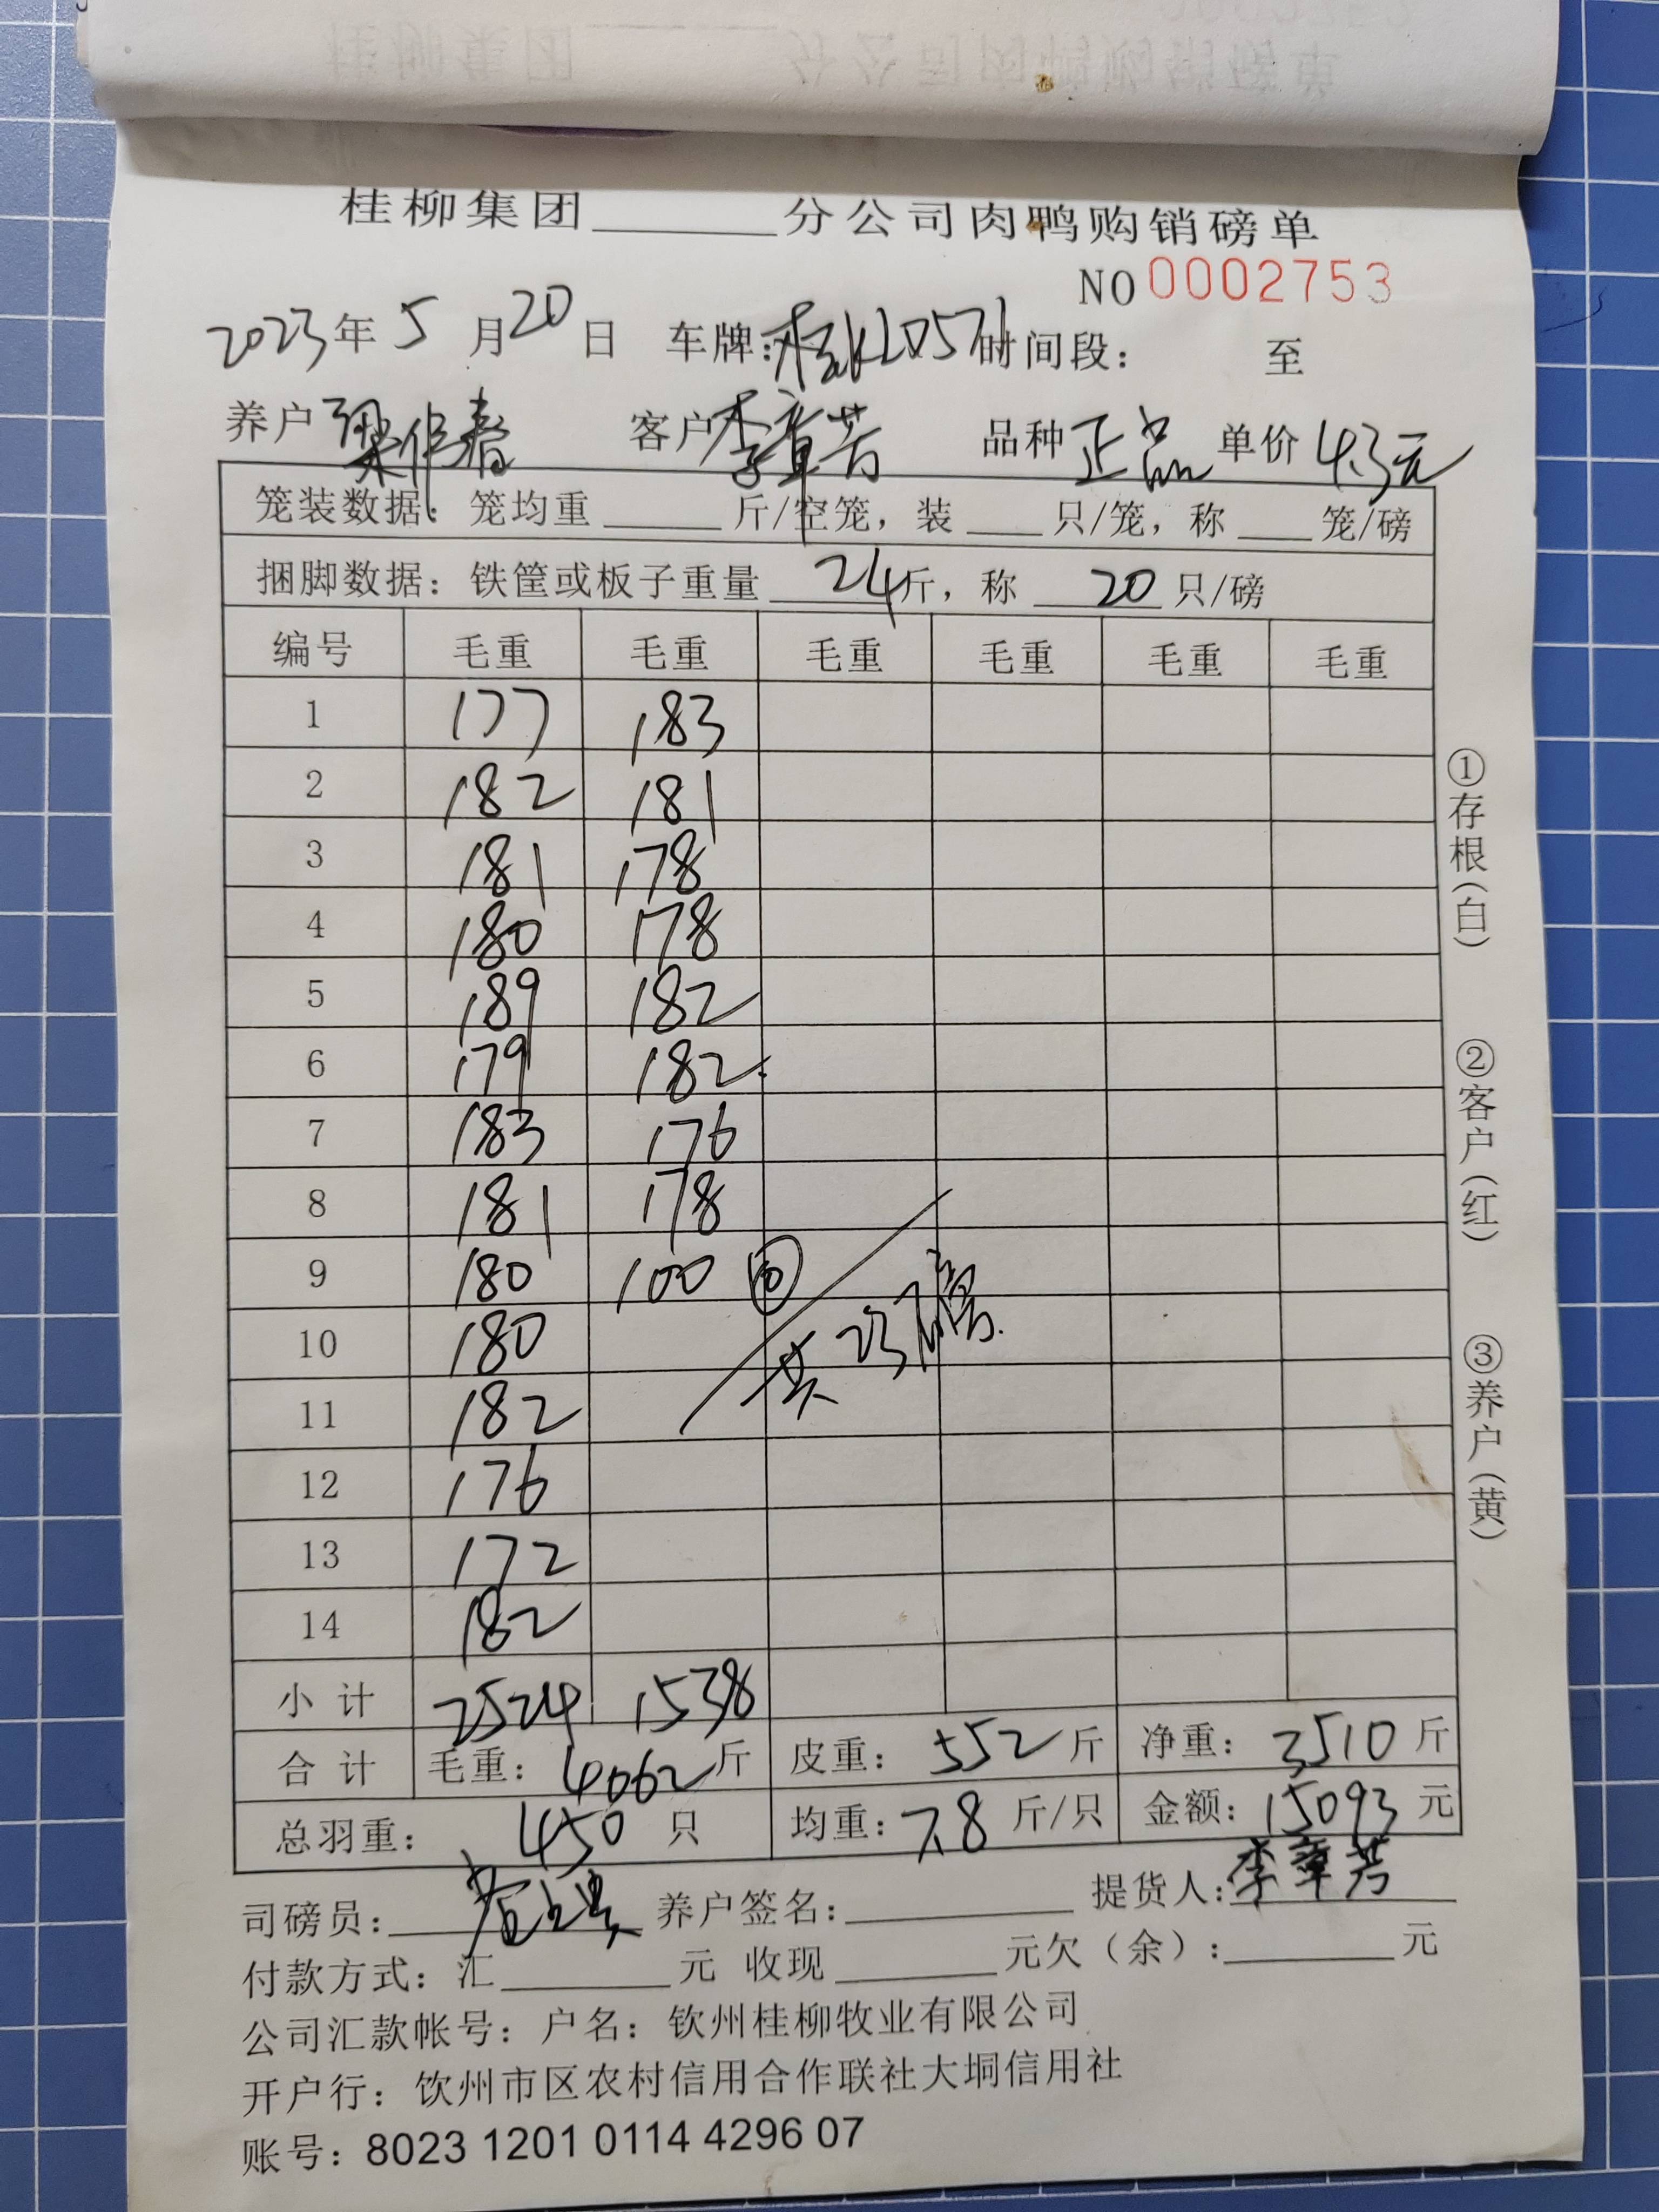 桂柳集团______分公司肉鸭购销磅单
NO 0002753
2023年 5 月 20 日 车牌:桂KL0571 时间段: 至
养户 梁作春 客户 李章芳 品种 正品 单价 4.3元
笼装数据: 笼均重 ______ 斤/空笼, 装 ____ 只/笼, 称 ____ 笼/磅
捆脚数据: 铁筐或板子重量 24斤, 称 20 只/磅
编号 毛重 毛重 毛重 毛重 毛重 毛重
1 177 183
2 182 181
3 181 178
4 180 178
5 189 182
6 179 182
7 183 176
8 181 178
9 180 100 ⑩
10 180 共23磅
11 182
12 176
13 172
14 182
小计 2524 1538
合计 毛重: 4062斤 皮重: 552斤 净重: 3510斤
总羽重: 450 只 均重: 7.8 斤/只 金额: 15093 元
司磅员: 养户签名:________ 提货人: 李章芳
付款方式: 汇________元 收现________元欠(余):________元
公司汇款帐号: 户名: 钦州桂柳牧业有限公司
开户行: 饮州市区农村信用合作联社大垌信用社
账号: 8023 1201 0114 4296 07
①存根(白)
②客户(红)
③养户(黄)